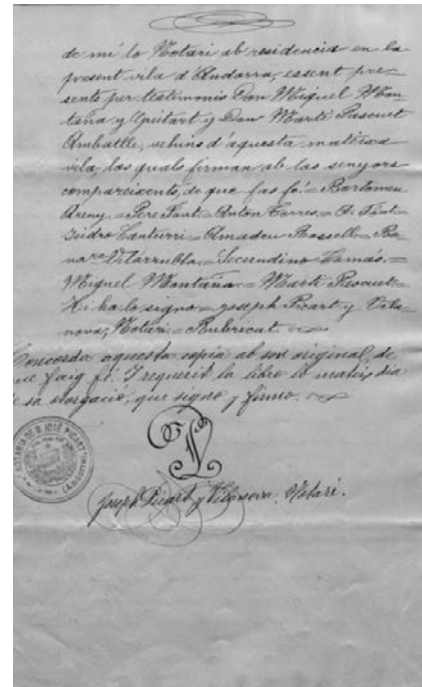 de mí lo Notari ab residencia en la
present vila d'Andorra, essent pre-
sents per testimonis Don Miguel Mon-
taña y Don Martí Pascuet
vehins d'aquesta mateixa
vila, los quals firman ab los senyors
compareixents, de que fas fé. = Bartomeu
Areny = Pere Font = Anton Torres = A. Font =
Isidro Canturri = Amadeu Rossell = Bo-
nav.ra Vilarrubla = Secundino Tomás. =
Miguel Montaña = Martí Pascuet =
Hi ha lo signo = Joseph Picart y Vila-
nova, Notari = Rubricat.
Concorda aquesta copia ab son original, de
que faig fé. I requerit la libro lo mateix dia
de sa otorgació, que signo y firmo.
NOTARIA DE D. JOSÉ PICART
Joseph Picart y Vilanova, Notari.